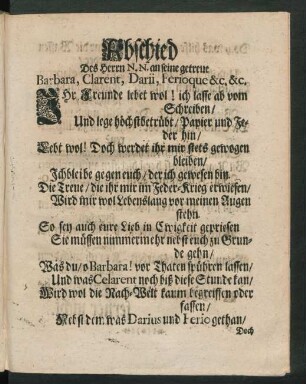 Abschied
Des Herrn N. N. an seine getreue
Barbara, Clarent, Darii, Ferioque &c. &c.
IHr Freunde lebet wol! ich lasse ab vom
Schreiben/
Und lege höchstbetrübt/ Papier und Fe-
der hin/
Lebt wol! Doch werdet ihr mir stets gewogen
bleiben/
Ich bleibe gegen euch/ der ich gewesen bin.
Die Treue/ die ihr mir im Feder-Krieg erwiesen/
Wird mir wol Lebenslang vor meinen Augen
stehn.
So sey auch eure Lieb in Ewigkeit gepriesen
Sie müssen nimmermehr nebst euch zu Grun-
de gehn/
Was du/ o Barbara! vor Thaten spühren lassen/
Und was Celarent noch biß diese Stunde kan/
Wird wol die Nach-Welt kaum begreiffen oder
fassen/
Nebst dem was Darius und Ferio gethan/
Doch